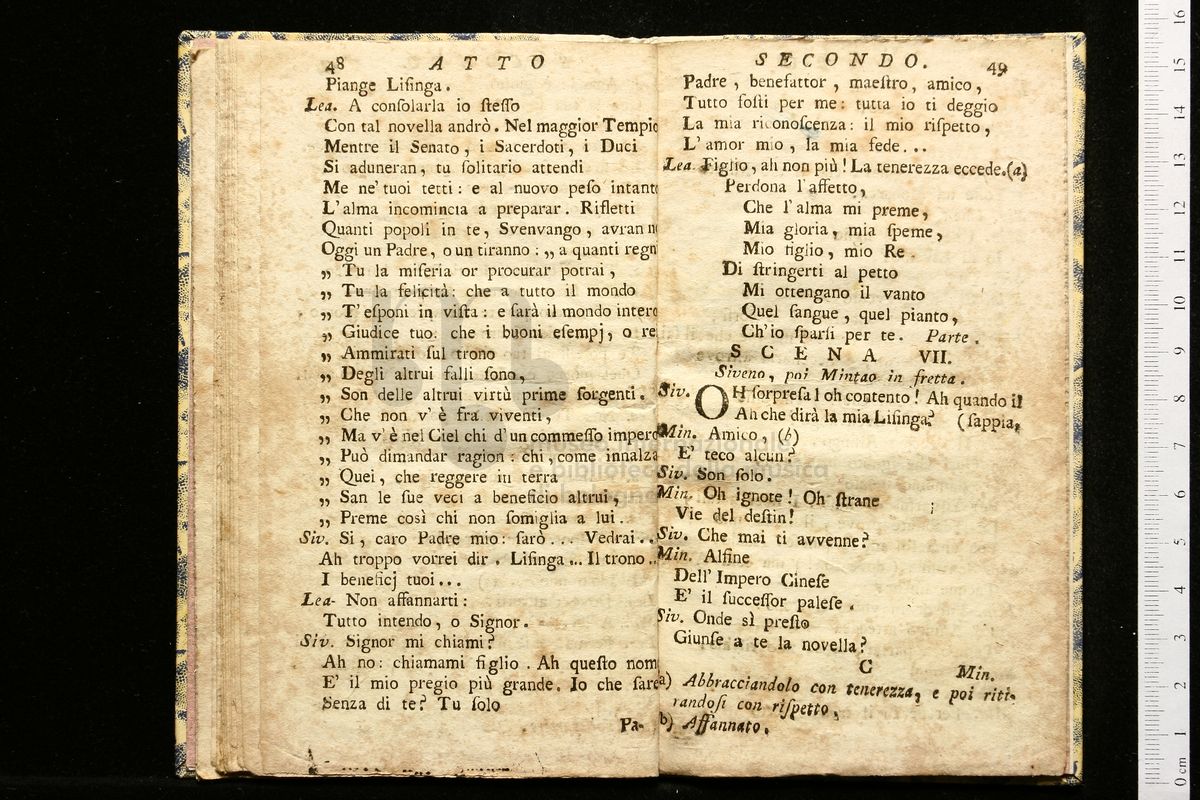 48 ATTO
Piange Liſinga.
Lea. A conſolarla io ſteſſo
Con tal novella andrò. Nel maggior Tempio
Mentre il Senato, i Sacerdoti, i Duci
Si aduneran, tu ſolitario attendi
Me ne' tuoi tetti: e al nuovo peſo intant
L'alma incomincia a preparar. Rifletti
Quanti popoli in te, Svenvango, avran n
Oggi un Padre, o un tiranno: „ a quanti regn
„ Tu la miſeria or procurar potrai,
„ Tu la felicità: che a tutto il mondo
„ T'eſponi in viſta: e ſarà il mondo intero
„ Giudice tuo: che i buoni eſempj, o re
„ Ammirati ſul trono
„ Degli altrui falli ſono,
„ Son delle altrui virtù prime ſorgenti.
„ Che non v'è fra viventi,
„ Ma v'è nel Ciel chi d'un commeſſo impero
„ Può dimandar ragion: chi, come innalza
„ Quei, che reggere in terra
„ San le ſue veci a beneficio altrui,
„ Preme così chi non ſomiglia a lui.
Siv. Si, caro Padre mio: ſarò... Vedrai..
Ah troppo vorrei dir. Liſinga... Il trono..
I beneficj tuoi...
Lea- Non affannarti:
Tutto intendo, o Signor.
Siv. Signor mi chiami?
Ah no: chiamami figlio. Ah queſto nom
E' il mio pregio più grande. Io che ſare
Senza di te? Tu ſolo
Pa-
SECONDO. 49
Padre, benefattor, maeſtro, amico,
Tutto foſti per me: tutta io ti deggio
La mia riconoſcenza: il mio riſpetto,
L'amor mio, la mia fede...
Lea. Figlio, ah non più! La tenerezza eccede.(a)
Perdona l'affetto,
Che l'alma mi preme,
Mia gloria, mia ſpeme,
Mio figlio, mio Re.
Di ſtringerti al petto
Mi ottengano il vanto
Quel ſangue, quel pianto,
Ch'io ſparſi per te. Parte.
SCENA VII.
Siveno, poi Mintao in fretta.
Siv. OH ſorpreſa! oh contento! Ah quando il
Ah che dirà la mia Liſinga? (ſappia,
Min. Amico, (b)
E' teco alcun?
Siv. Son ſolo.
Min. Oh ignote! Oh ſtrane
Vie del deſtin!
Siv. Che mai ti avvenne?
Min. Alfine
Dell'Impero Cineſe
E' il ſucceſſor paleſe.
Siv. Onde sì preſto
Giunſe a te la novella?
C Min.
a) Abbracciandolo con tenerezza, e poi riti-
randoſi con riſpetto,
b) Affannato.